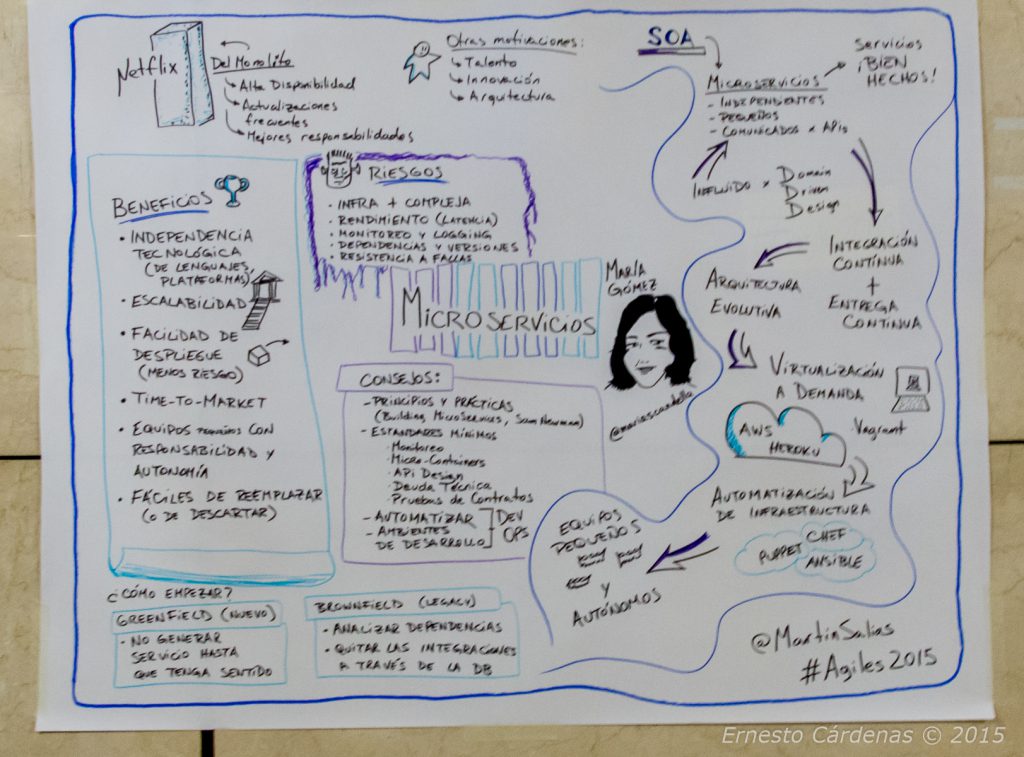 Netflix
Del Monolito
Alta Disponibilidad
Actualizaciones
frecuentes
Mejores responsabilidades
Otras motivaciones:
Talento
Innovación
Arquitectura
SOA
MICROSERVICIOS
- INDEPENDIENTES
- PEQUEÑOS
- COMUNICADOS x APIs
Servicios
¡BIEN
HECHOS!
INFLUIDO x Domain
Driven
Design
INTEGRACIÓN
CONTÍNUA
+
ENTREGA
CONTÍNUA
ARQUITECTURA
EVOLUTIVA
VIRTUALIZACIÓN
A DEMANDA
Vagrant
AWS
HEROKU
AUTOMATIZACIÓN
DE INFRAESTRUCTURA
CHEF
PUPPET
ANSIBLE
EQUIPOS
PEQUEÑOS
Y
AUTÓNOMOS
BENEFICOS
• INDEPENDENCIA
TECNOLÓGICA
(DE LENGUAJES,
PLATAFORMAS)
• ESCALABILIDAD
• FACILIDAD DE
DESPLIEGUE
(MENOS RIESGO)
• TIME-TO-MARKET
• EQUIPOS PEQUEÑOS CON
RESPONSABILIDAD Y
AUTONOMÍA
• FÁCILES DE REEMPLAZAR
(O DE DESCARTAR)
RIESGOS
• INFRA + COMPLEJA
• RENDIMIENTO (LATENCIA)
• MONITOREO Y LOGGING
• DEPENDENCIAS Y VERSIONES
• RESISTENCIA A FALLAS
MICROSERVICIOS
MARÍA
GÓMEZ
CONSEJOS:
- PRINCIPIOS Y PRÁCTICAS
(Building MicroServices, Sam Newman)
- ESTANDARES MÍNIMOS
• Monitoreo
• Micro-Containers
• API Design
• Deuda Técnica
• Pruebas de Contratos
- AUTOMATIZAR
- AMBIENTES
DE DESARROLLO
DEV
OPS
¿CÓMO EMPEZAR?
GREENFIELD (NUEVO)
• NO GENERAR
SERVICIO HASTA
QUE TENGA SENTIDO
BROWNFIELD (LEGACY)
• ANALIZAR DEPENDENCIAS
• QUITAR LAS INTEGRACIONES
A TRAVÉS DE LA DB
@MartinSalias
#Agiles2015
Ernesto Cárdenas © 2015